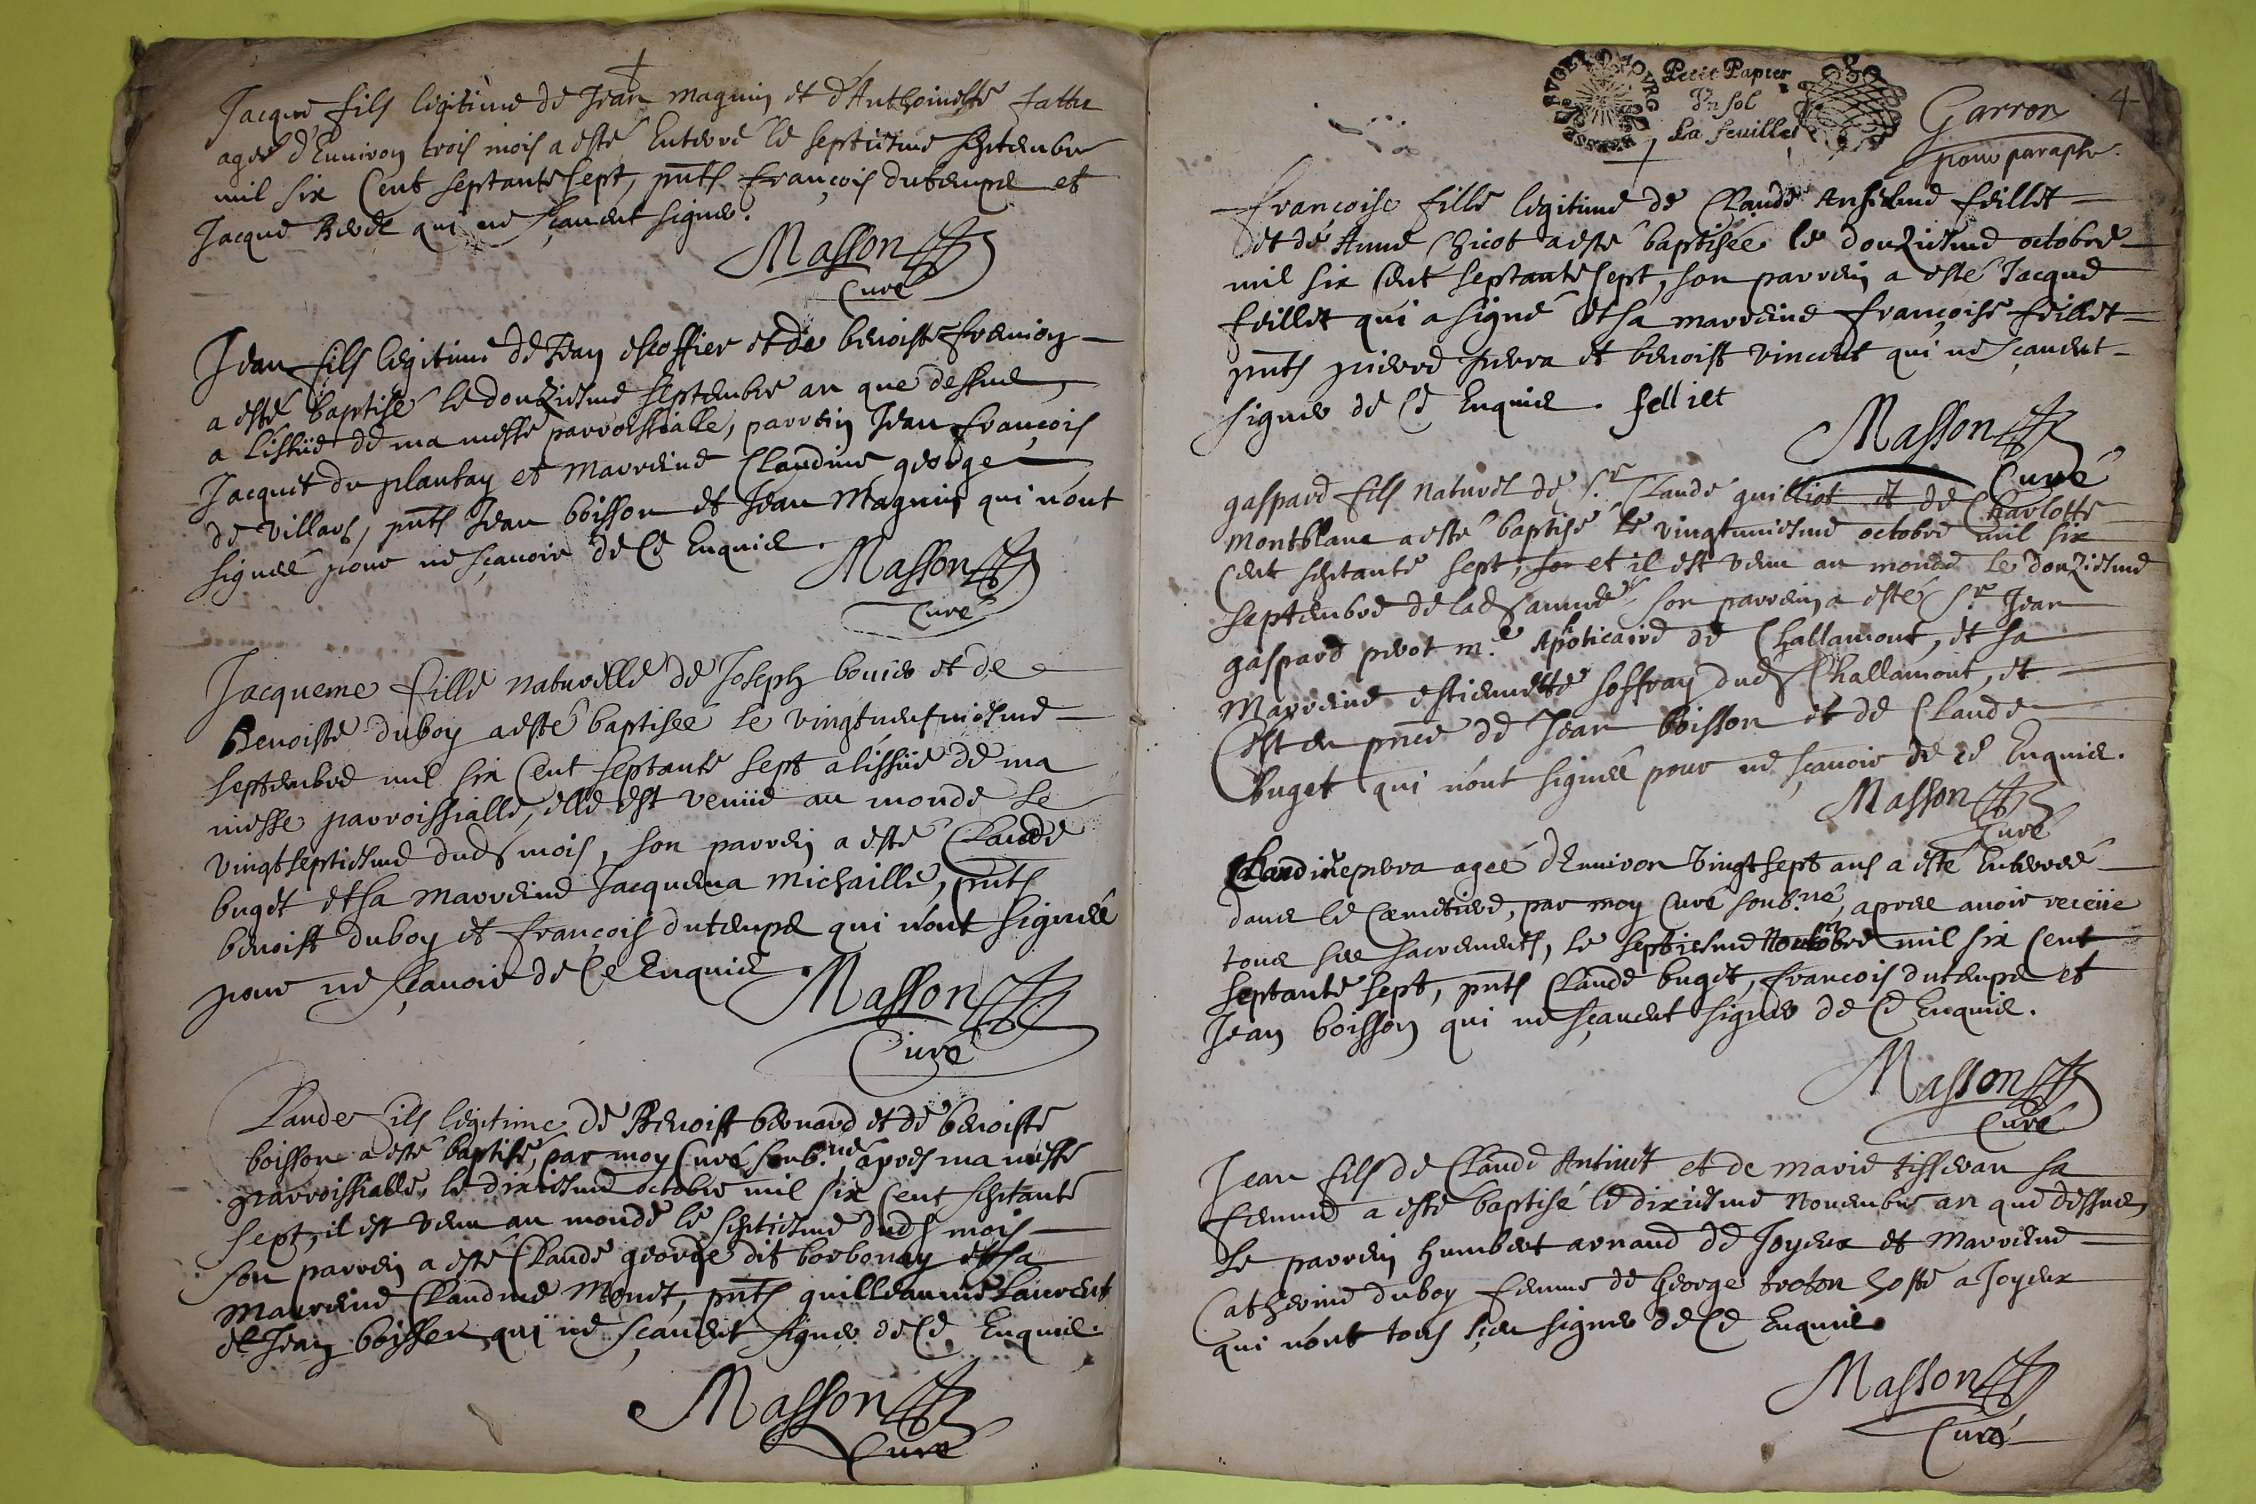 Jacque fils legitime de Jean magnin et d'Anthoinette fattu
agee d'Enuiron trois mois a esté Enterré le septiesme septembre
mil six Cent septante sept, pnts françois dutemps et
Jacque Revel qui ne sçauent signer.
Masson
Curé
Jean fils legitime de Jean escoffier et de benoiste fremion
a esté baptisé le douziesme septembre an que dessus
a lissüe de ma messe parroissialle, parrein Jean françois
Jacquet du plantay et Marreine Claudine george
de Villars, pnts Jean boisson et Jean Magnin qui n'ont
signéé pour ne sçauoir de ce Enquis.
Masson
Curé
Jacqueme fille naturelle de Joseph bouier et de
Benoiste duboy a esté baptisée le vingtneufuiesme
septembre mil six Cent septante sept a lissüe de ma
messe parroissialle, elle est venüe au monde le
vingtseptiesme dud mois, son parrein a esté Claude
buget et sa Marreine Jacquema michaille, pnts
benoist duboy et françois dutemps qui n'ont signéé
pour ne sçauoir de Ce Enquis.
Masson
Curé
Claude fils legitime de Benoist bernard et de benoiste
boisson a esté baptisé, par moy Curé soub.né apres ma messe
parroissialle, le dixiesme octobre mil six Cent septante
sept, il est venu au monde le septiesme dud mois
son parrein a esté Claude george dit borbonay et sa
Marreine Claudine Monet, pnts guilleaume Laurent
et Jean boisson qui ne sçauent signer de Ce Enquis.
Masson
Curé
Petit Papier
Vn sol
La feuille
Garron
pour paraphe.
4
françoise fille legitime de Claude Anselme feillet
et de Anne Chicot a esté baptisée le douziesme octobre
mil six Cent septante sept, son parrein a esté Jacque
feillet qui a signé et sa marreine françoise feillet
pnts pierre perra et benoist vincent qui ne sçauent
signer de Ce Enquis. felliet
Masson
Curé
gaspard fils naturel de Sr Claude guilliot et de Charlotte
Montblanc a esté baptisé le vingtuniesme octobre mil six
Cent septante sept, son et il est venu au monde le douziesme
septembre de lad annéé son parrein a esté Sr Jean
gaspard pivot me. Apoticaire de Challamont, et sa
Marreine estiennette soffray dud Challamont, et
C'est en pnce de Jean boisson et de Claude
buget qui n'ont signéé pour ne sçauoir de ce Enquis.
Masson
Curé
Claudine perra ageé d'Enuiron vingtsept ans a esté Enterreé
dans le Cemetiere, par moy Curé soub.né, apres auoir receüe
tous ses sacrements, le septiesme Nouembre mil six Cent
septante sept, pnts Claude buget, françois dutemps et
Jean boisson qui ne sçauent signer de Ce Enquis.
Masson
Curé
Jean fils de Claude Antinet et de marie tisseran sa
femme a esté baptisé le dixiesme Nouembre an que dessus
Le parrein humbert arnaud de Joyeux et Marreine
Catherine duboy femme de George troton hoste a Joyeux
qui n'ont tous sçeu signer de Ce Enquis
Masson
Curé